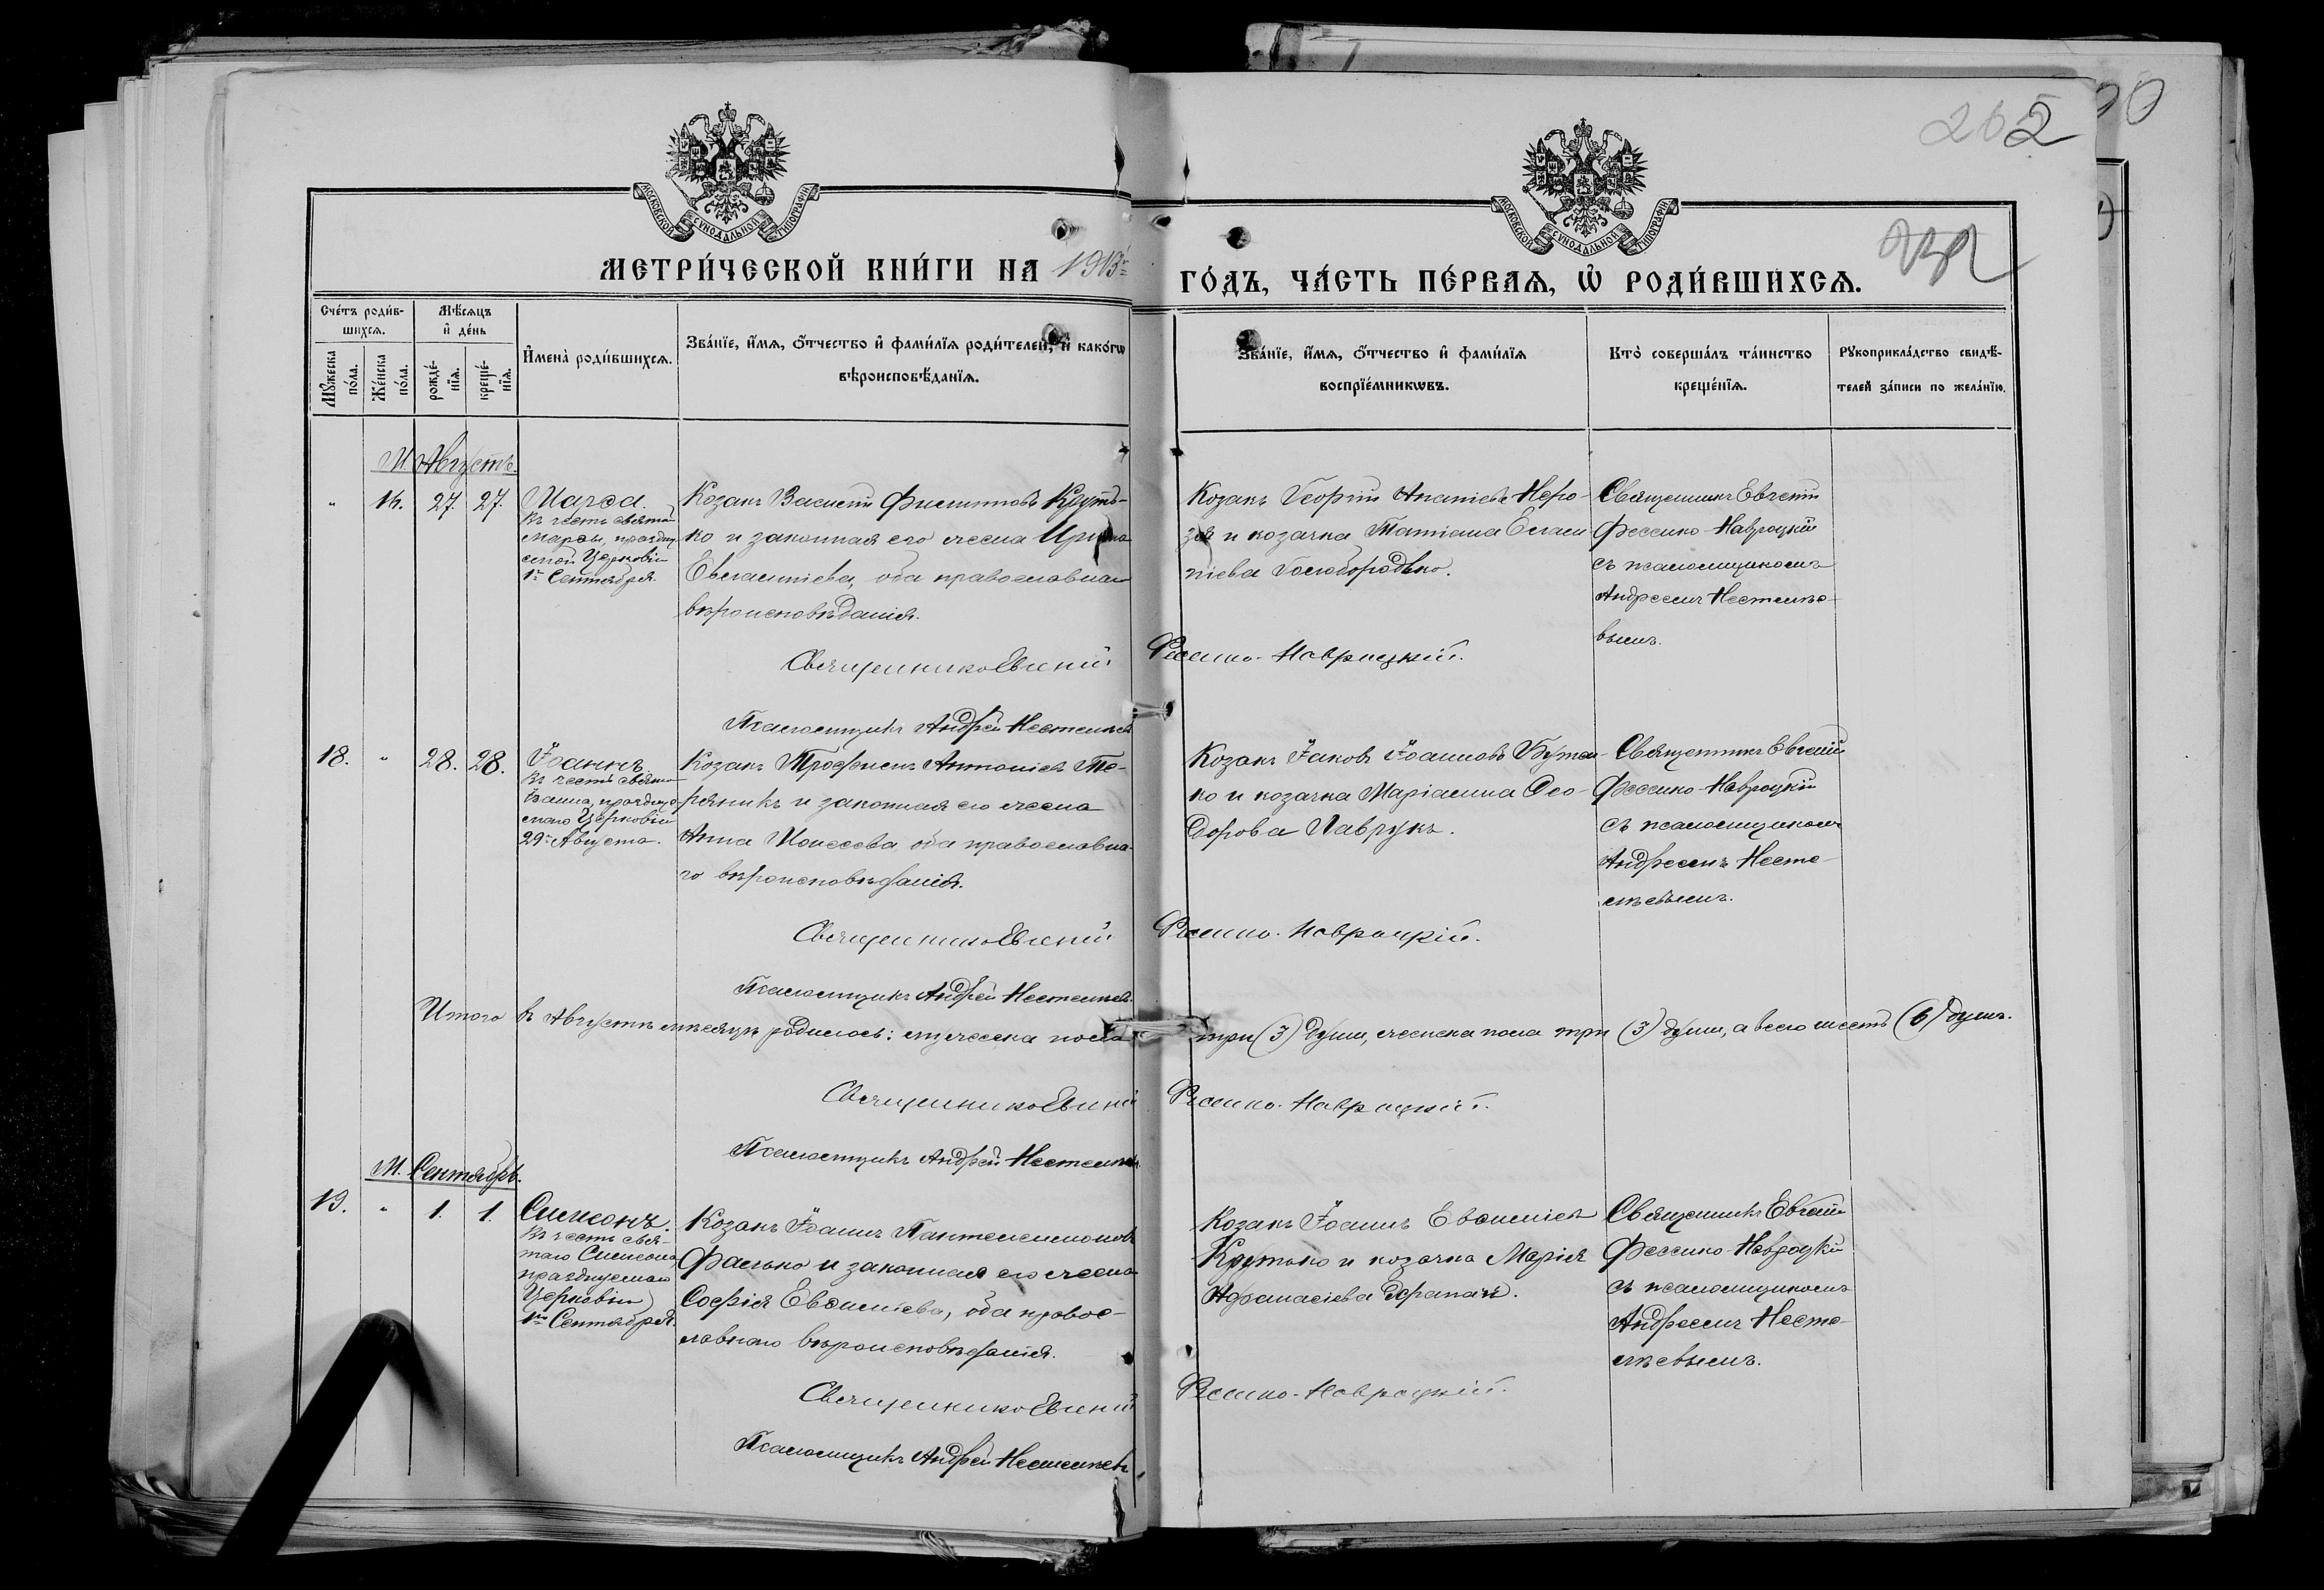 262
МОСКОВСКОЙ СѴНОДАЛЬНОЙ ТИПОГРАФІИ
МОСКОВСКОЙ СѴНОДАЛЬНОЙ ТИПОГРАФІИ
МЕТРИ́ЧЕСКОЙ КНИ́ГИ НА 1913 г. ГО́ДЪ, ЧА́СТЬ ПЕ́РВАѦ, Ѡ҆ РОДИ́ВШИХСѦ.
Счéтъ роди́в-
шихсѧ.
Мꙋ́жеска
по́ла.
Же́нска
по́ла.
Мѣ́сѧцъ
и҆ де́нь
рожде́-
нїѧ.
креще́-
нїѧ.
И҆мена̀ роди́вшихсѧ.
Зва́нїе, и҆́мѧ, ѻ҆́тчество и҆ фами́лїѧ роди́телей, и҆ како́гѡ
вѣроисповѣ́данїѧ.
Зва́нїе, и҆́мѧ, ѻ҆́тчество и҆ фами́лїѧ
воспрїе́мникѡвъ.
Кто̀ соверша́лъ та́инство
креще́нїѧ.
Рꙋкоприкла́дство свидѣ́-
телей за́писи по жела́нїю.
М. Августъ.
" 16. 27. 27.
Марѳа.
Въ честь святой
Марѳы, праздну
емой Церковію
1го Сентября.
Козакъ Василій Филипповъ Круть-
ко и законная его жена Ирина
Евлампіева, оба православнаго
вѣроисповѣданія.
Козакъ Георгій Ананіевъ
и козачка Татіана Евлам
піева Голобородько.
Священникъ Евгеній
Фесенко-Навроцкій
съ псаломщикомъ
Андреемъ Нестеле-
вымъ.
Священникъ Евгеній Фесенко-Навроцкій.
Псаломщикъ Андрей
18. " 28. 28.
Іоаннъ.
Въ честь святаго
Іоанна, празднуе
маго Церковію
29го Августа.
Козакъ Трофимъ Антоніевъ Те-
реникъ и законная его жена
Анна Моисеева оба православна-
го вѣроисповѣданія.
Козакъ Іаковъ Іоанновъ Бутен-
ко и козачка Маріамна Ѳео-
дорова Лаврукъ.
Священникъ Евгеній
Фесенко-Навроцкій
съ псаломщикомъ
Андреемъ
Священникъ Евгеній Фесенко-Навроцкій.
Псаломщикъ Андрей
Итого въ Августѣ мѣсяцѣ родилось: мужеска пола три (3) души, женска пола три (3) души, а всего шесть (6) душъ.
Священникъ Евгеній Фесенко-Навроцкій.
Псаломщикъ Андрей
М. Сентябрь.
19. " 1. 1.
Симеонъ.
Въ честь свя-
таго Симеона,
празднуемаго
Церковію
1го Сентября.
Козакъ Іоаннъ Пантелеимоновъ
Фалько и законная его жена
Софія Евѳиміева, оба правос-
лавнаго вѣроисповѣданія.
Козакъ Іоаннъ Евѳиміевъ
Крутько и козачка Марія
Афанасіева
Священникъ Евгеній
Фесенко-Навроцкій
съ псаломщикомъ
Андреемъ
Священникъ Евгеній Фесенко-Навроцкій.
Псаломщикъ Андрей